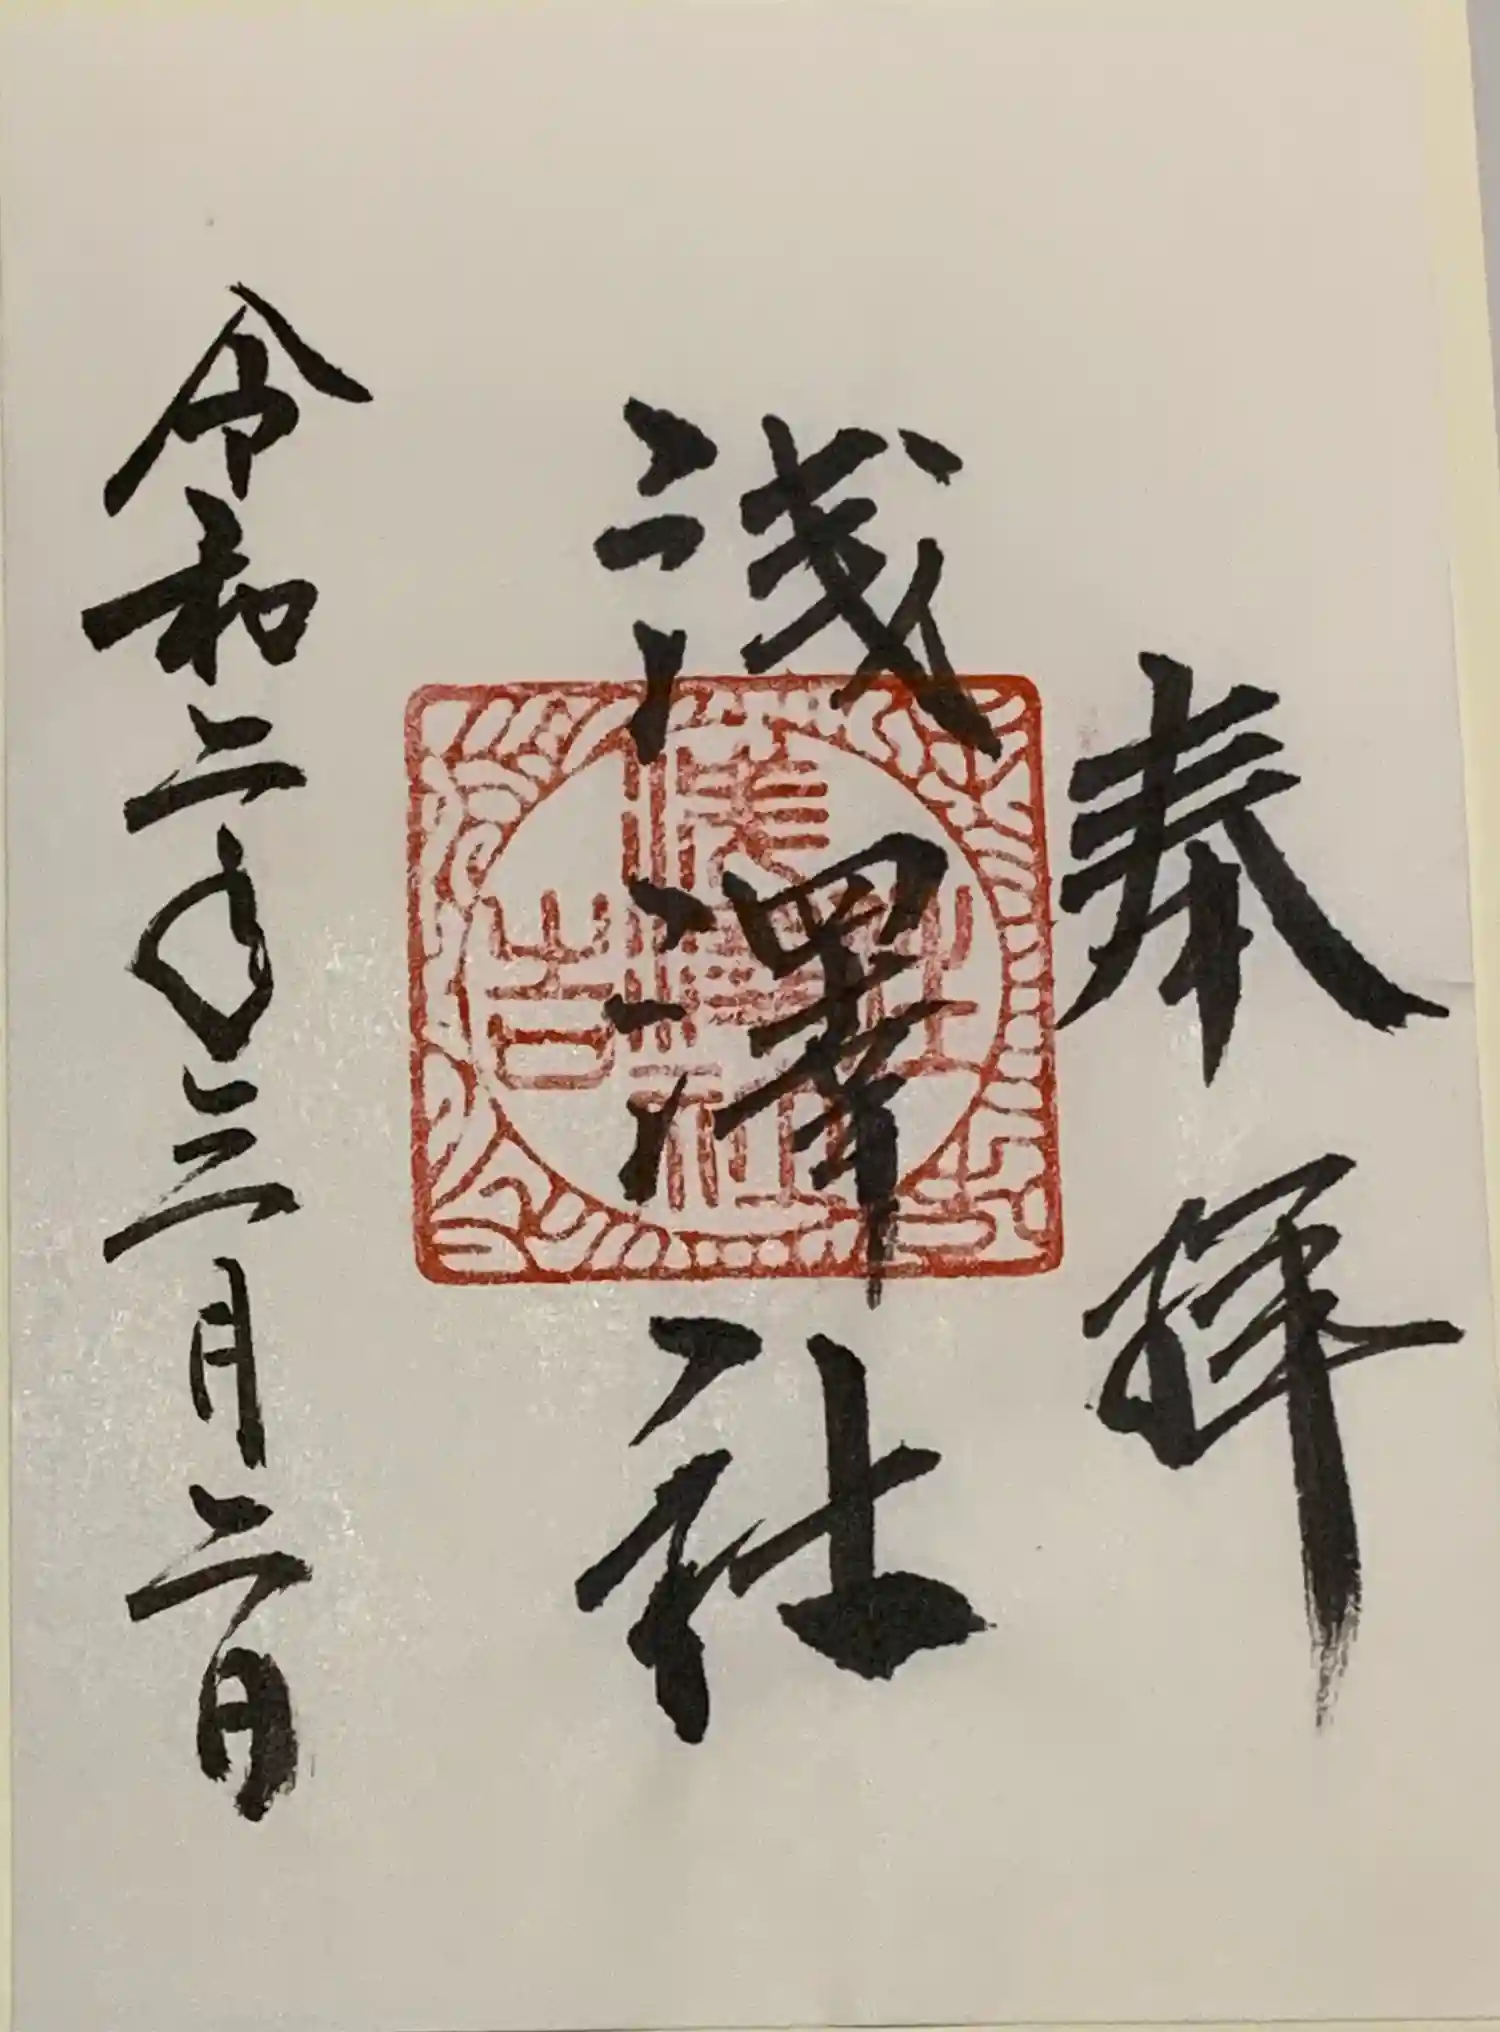 奉拝
浅澤社
令和二年三月二日
住吉
浅澤社